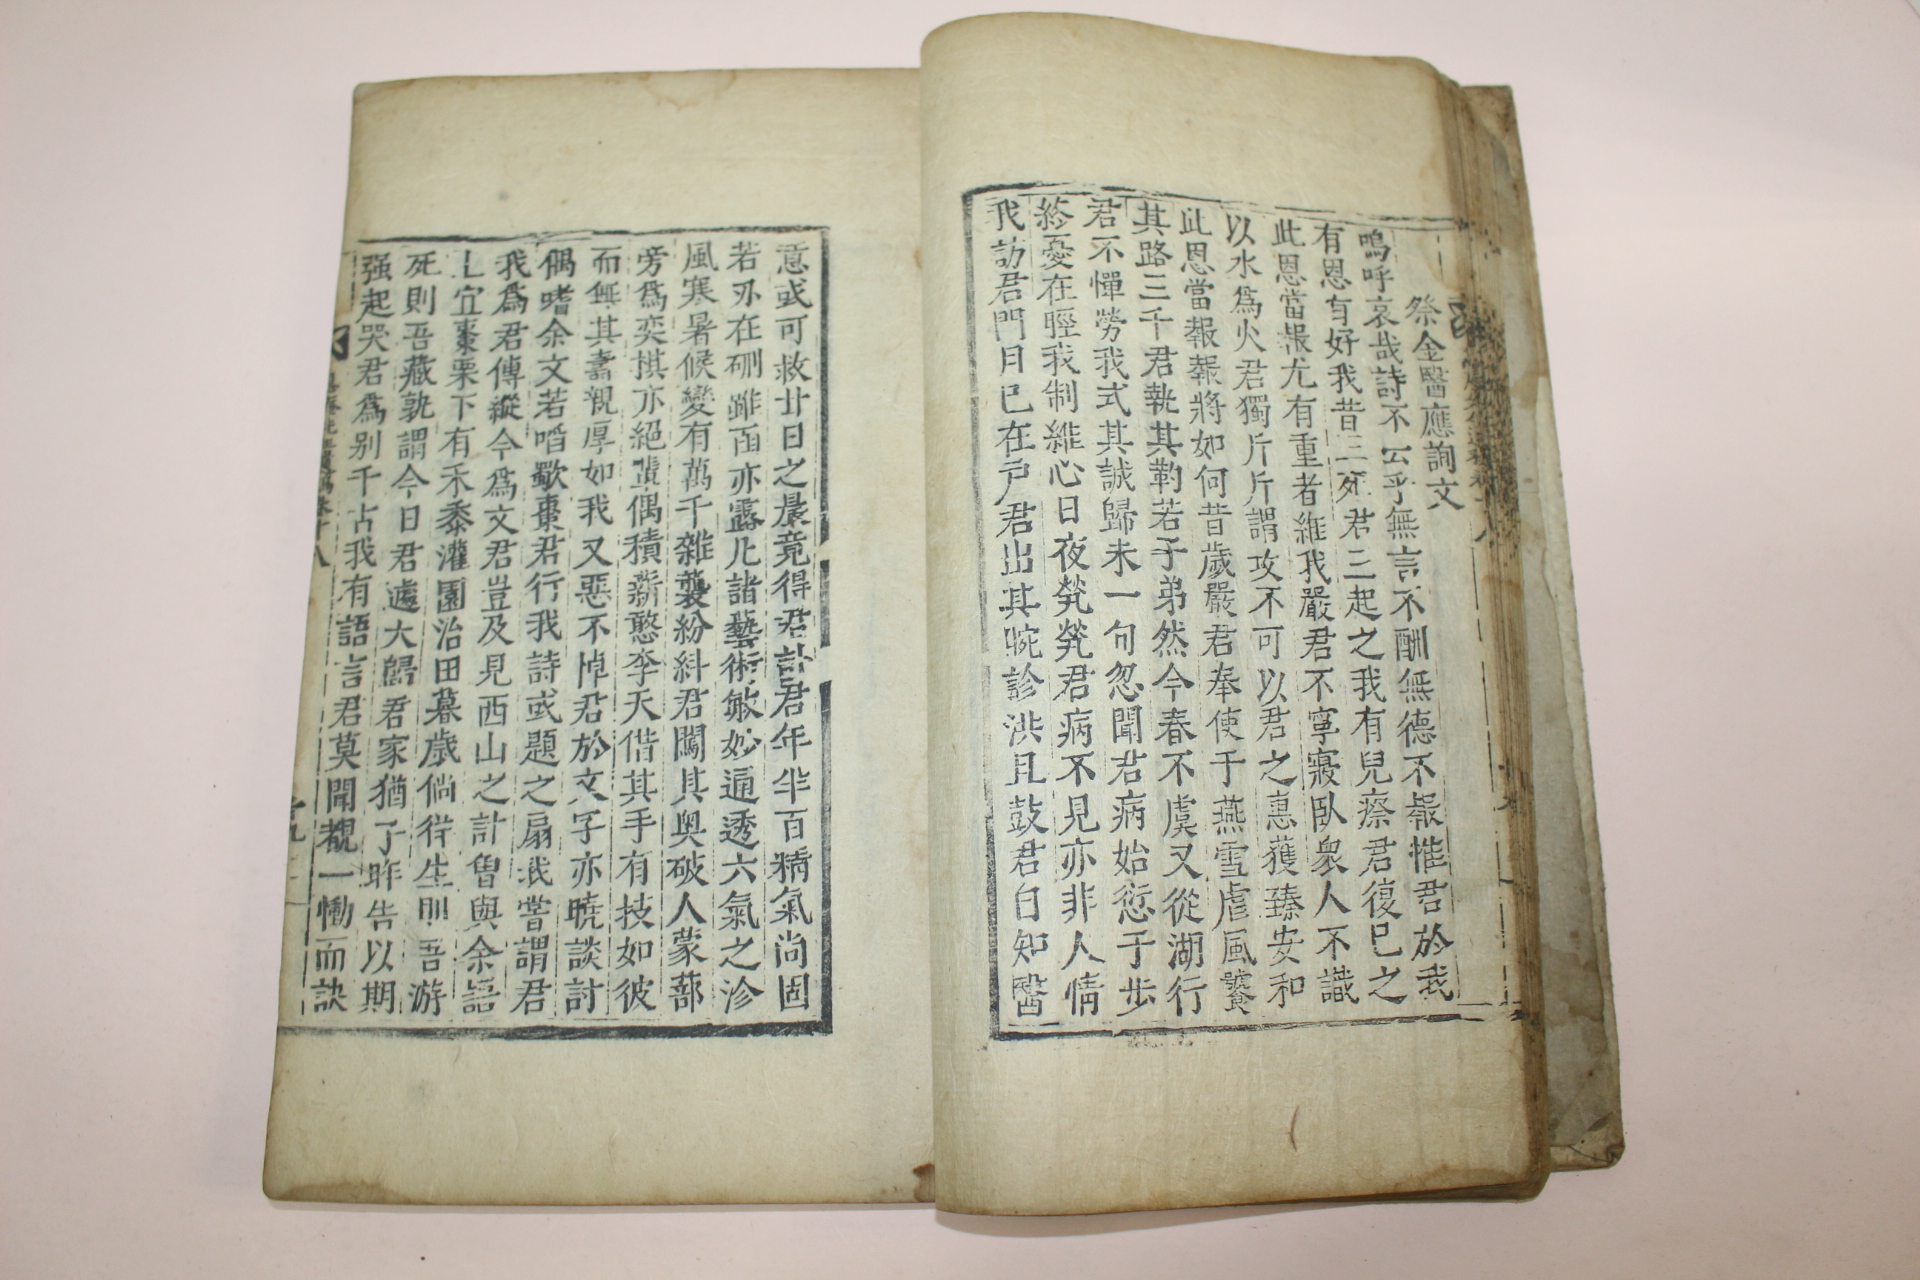 祭金醫應詢文
嗚呼哀哉詩不云乎無言不酬無德不報惟君於我
有恩有好我昔三死君三起之我有兒瘵君復已之
此恩當報尤有重者維我嚴君不寧寢臥衆人不識
以水爲火君獨斤斤謂攻不可以君之惠獲臻安和
此恩當報報將如何昔歲嚴君奉使于燕雪虐風饕
其路三千君執其靮若子弟然今春不虞又從湖行
君不憚勞我式其誠歸未一旬忽聞君病始愆于步
終憂在脛我制維心日夜煢煢君病不見亦非人情
我訪君門月已在戶君出其晼診洪且鼓君曰知醫
意或可救廿日之晨竟得君訃君年半百精氣尚固
若刃在硎雖函亦露凡諸藝術敏妙通透六氣之沴
風寒暑候變有萬千雜襲紛糾君闖其奧破人蒙蔀
旁爲奕棋亦絕輩偶積薪憨李天借其手有技如彼
而無其壽親厚如我又惡不悼君於文字亦曉談討
偶嗜余文若啗歜棗君行我詩或題之扇我嘗謂君
我爲君傳縱今爲文君豈及見西山之計曾與余語
土宜棗栗下有禾黍灌園治田暮歲倘徉生則吾游
死則吾藏孰謂今日君遽大歸君家猶子昨告以期
强起哭君爲別千古我有語言君莫聞覩一慟而訣